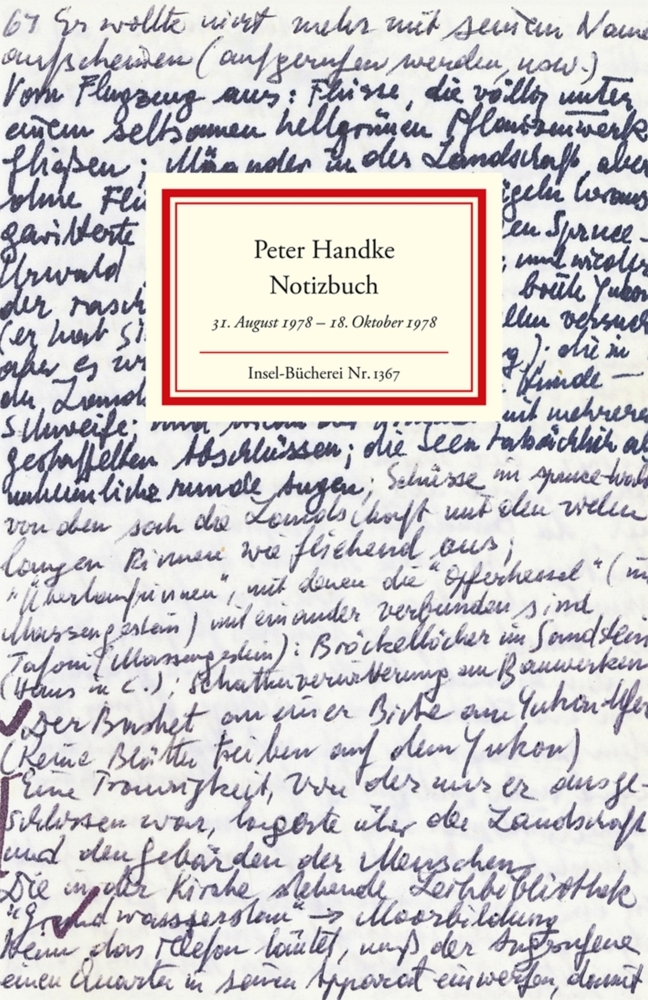 67 Er wollte nicht mehr mit seinem Name
aufscheinen (aufgerufen werden, usw.)
Vom Flugzeug aus: Flüsse, die völlig unter
einem seltsamen hellgrünen Pflanzenwerk
fließen; Mäander in der Landschaft, aber
ohne Flü
geln heraus
gewitterte
en Spruce-
Urwald
; und wieder
der rasch
breite Yukon
(er hat Si
llen versuch
aber es wi
g): die in
der Land
Hunde –
Peter Handke
Notizbuch
31. August 1978 – 18. Oktober 1978
Insel-Bücherei Nr. 1367
Schweife.
mit mehreren
gestaffelten Abschlüssen; die Seen tatsächlich al
unheimliche runde Augen; Schüsse im spruce-Wald
von oben sah die Landschaft mit den vielen
langen Rinnen wie fliehend aus;
"Überlaufrinnen", mit denen die "Opferkessel" (im
Massengestein) miteinander verbunden sind
Tafoni (Massengestein): Bröckellöcher im Sandstein
(Haus in C.); Schattenverwitterung an Bauwerken
Der Basket an einer Birke am Yukonufer
(Keine Blätter treiben auf dem Yukon)
Eine Traurigkeit, von der nur er ausge-
schlossen war, lagerte über der Landschaft
und den Gebärden der Menschen
Die in der Kirche stehende Leihbibliothek
"Grundwasserstau" → Moorbildung
Wenn das Telefon läutet, muß der Angerufene
einen Quarter in seinen Apparat einwerfen, damit